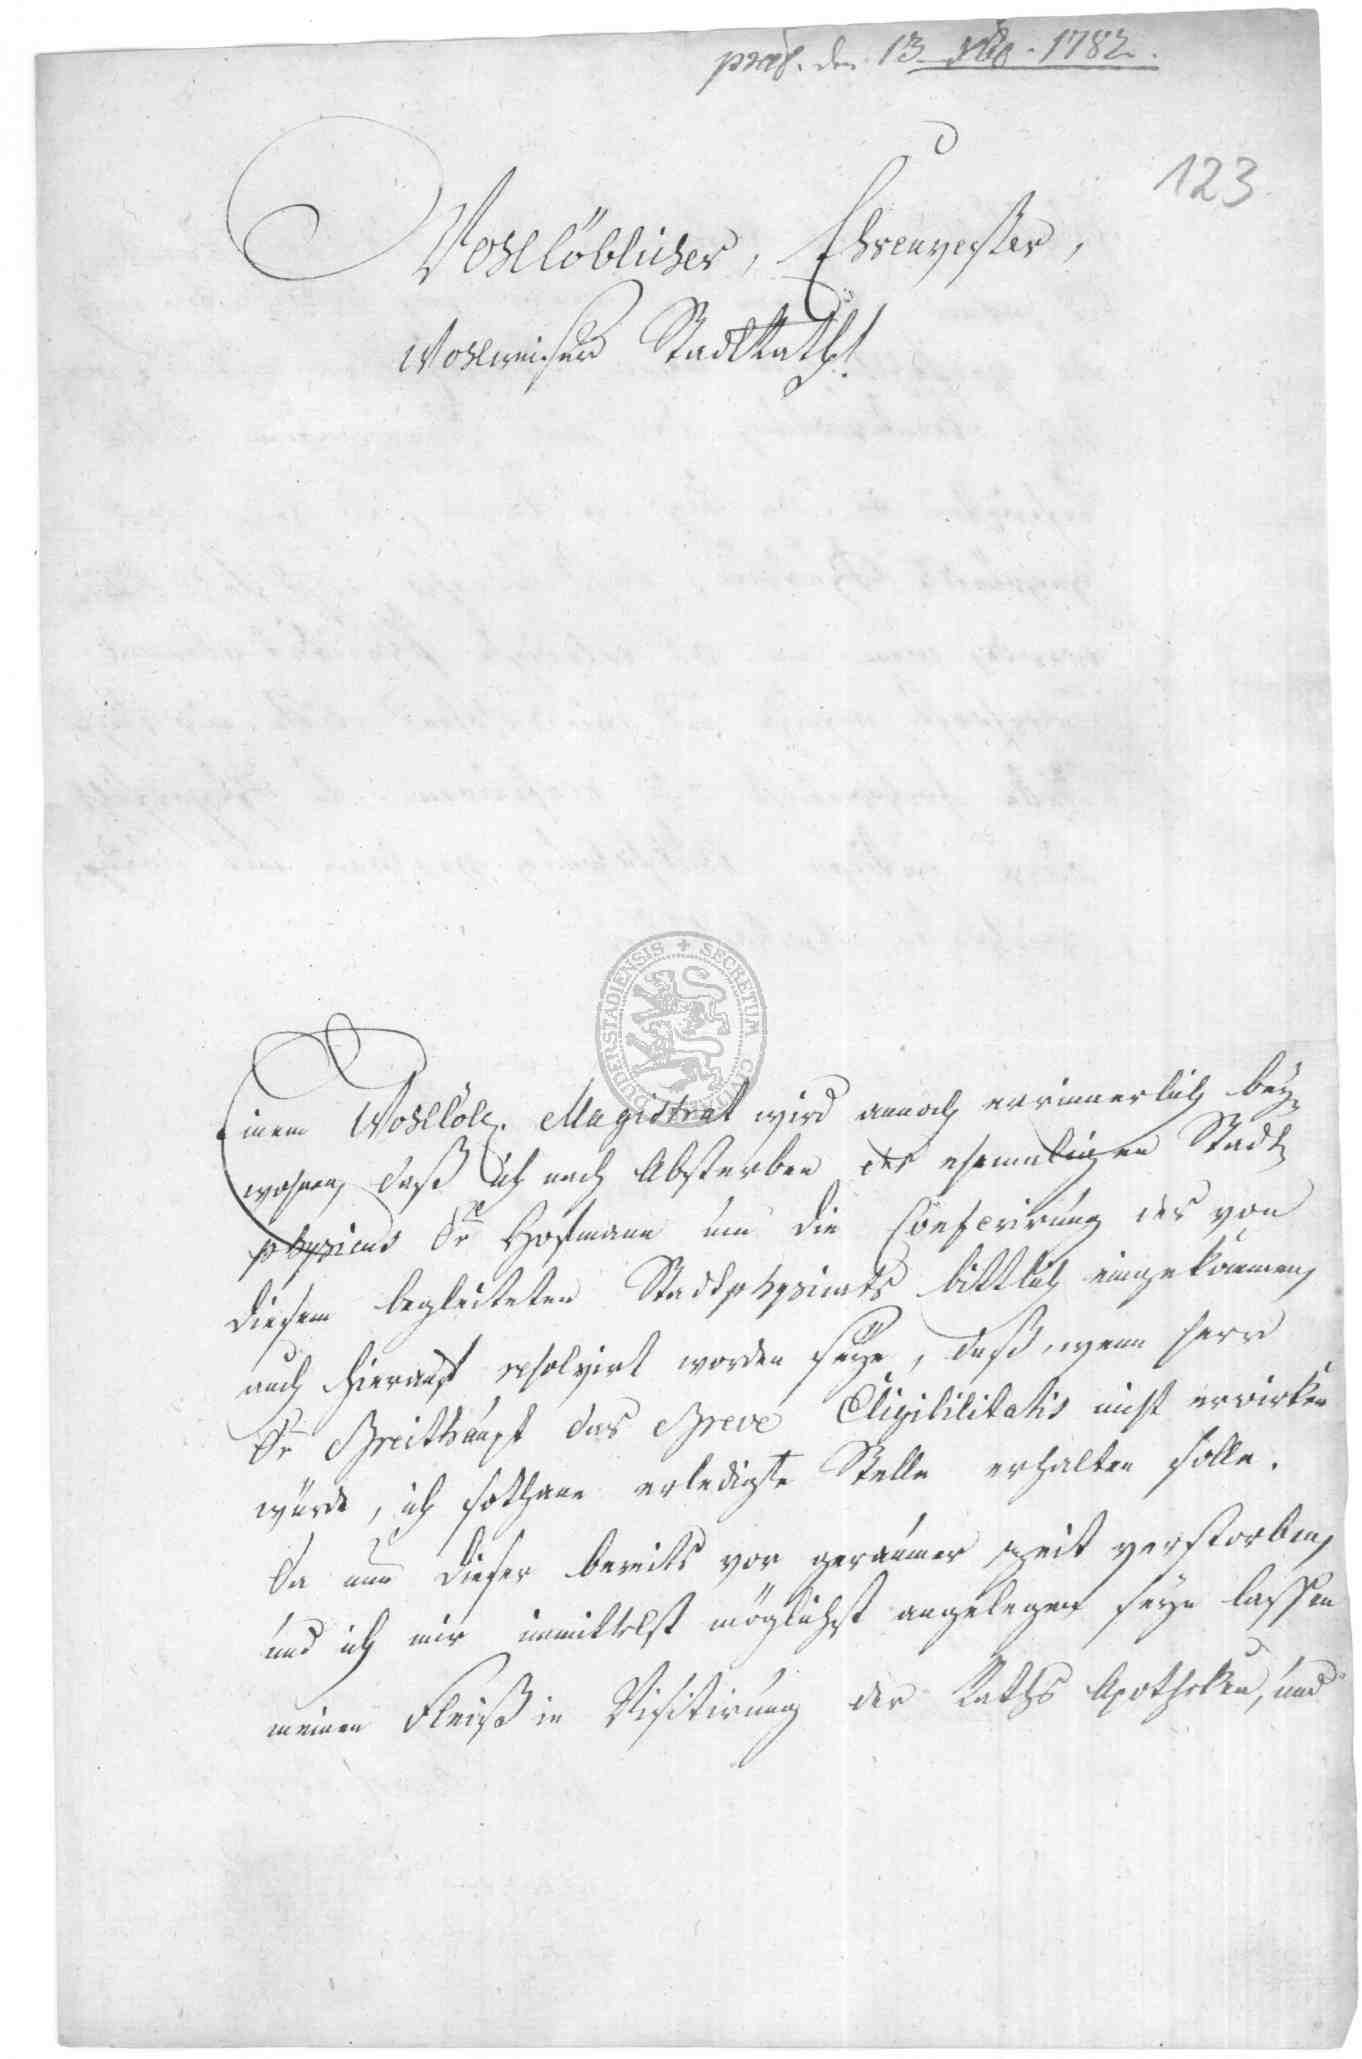 präs. den 13. Xbr. 1782.
123
Wohllöblicher, Ehrenvester,
Wohlweiser StadtRath!
DUDERSTADIENSIS + SECRETUM
Einem Wohllöbl. Magistrat wird annoch erinnerlich bey-
wohnen, daß ich nach Absterben des ehemaligen Stadt
physicus Dr Hofmann um die Conferirung des von
diesem begleiteten Stadtphysicats bittlich eingekommen,
auch hierauf resolvirt worden seye, daß, wenn Herr
Dr Breithaupt das Breve Eligibilitatis nicht erwirken
würde, ich sothane erledigte Stelle erhalten solle.
Da nun dieser bereits vor geraumer Zeit verstorben,
und ich mir inmittelst möglichst angelegen seyn lassen
meinen Fleiß in Visitirung der Raths Apotheken, und